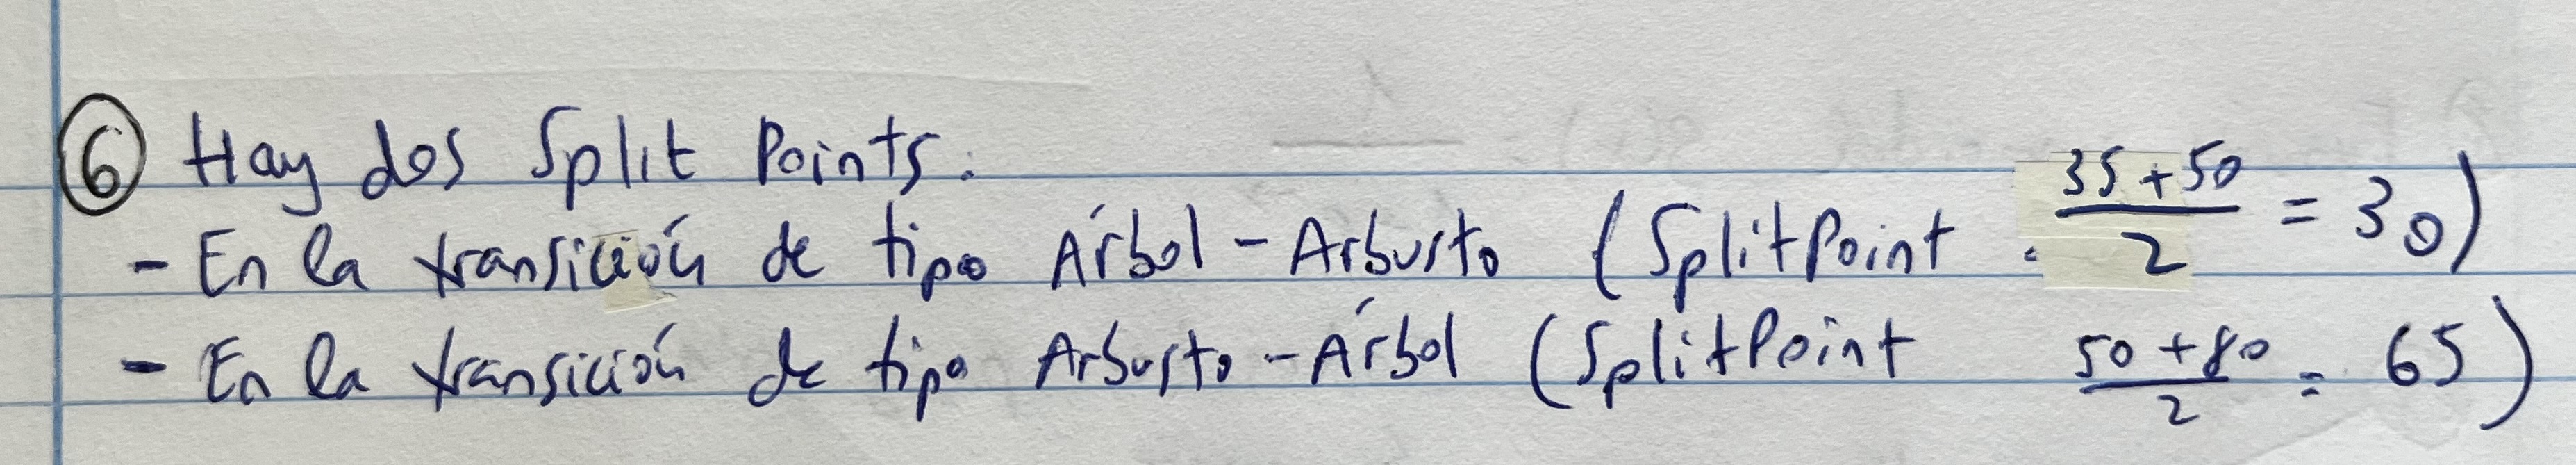 ⑥ Hay dos Split Points.
- En la transición de tipo Árbol - Arbusto (SplitPoint. 35+50/2 = 30)
- En la transición de tipo Arbusto - Árbol (SplitPoint 50+80/2 = 65)